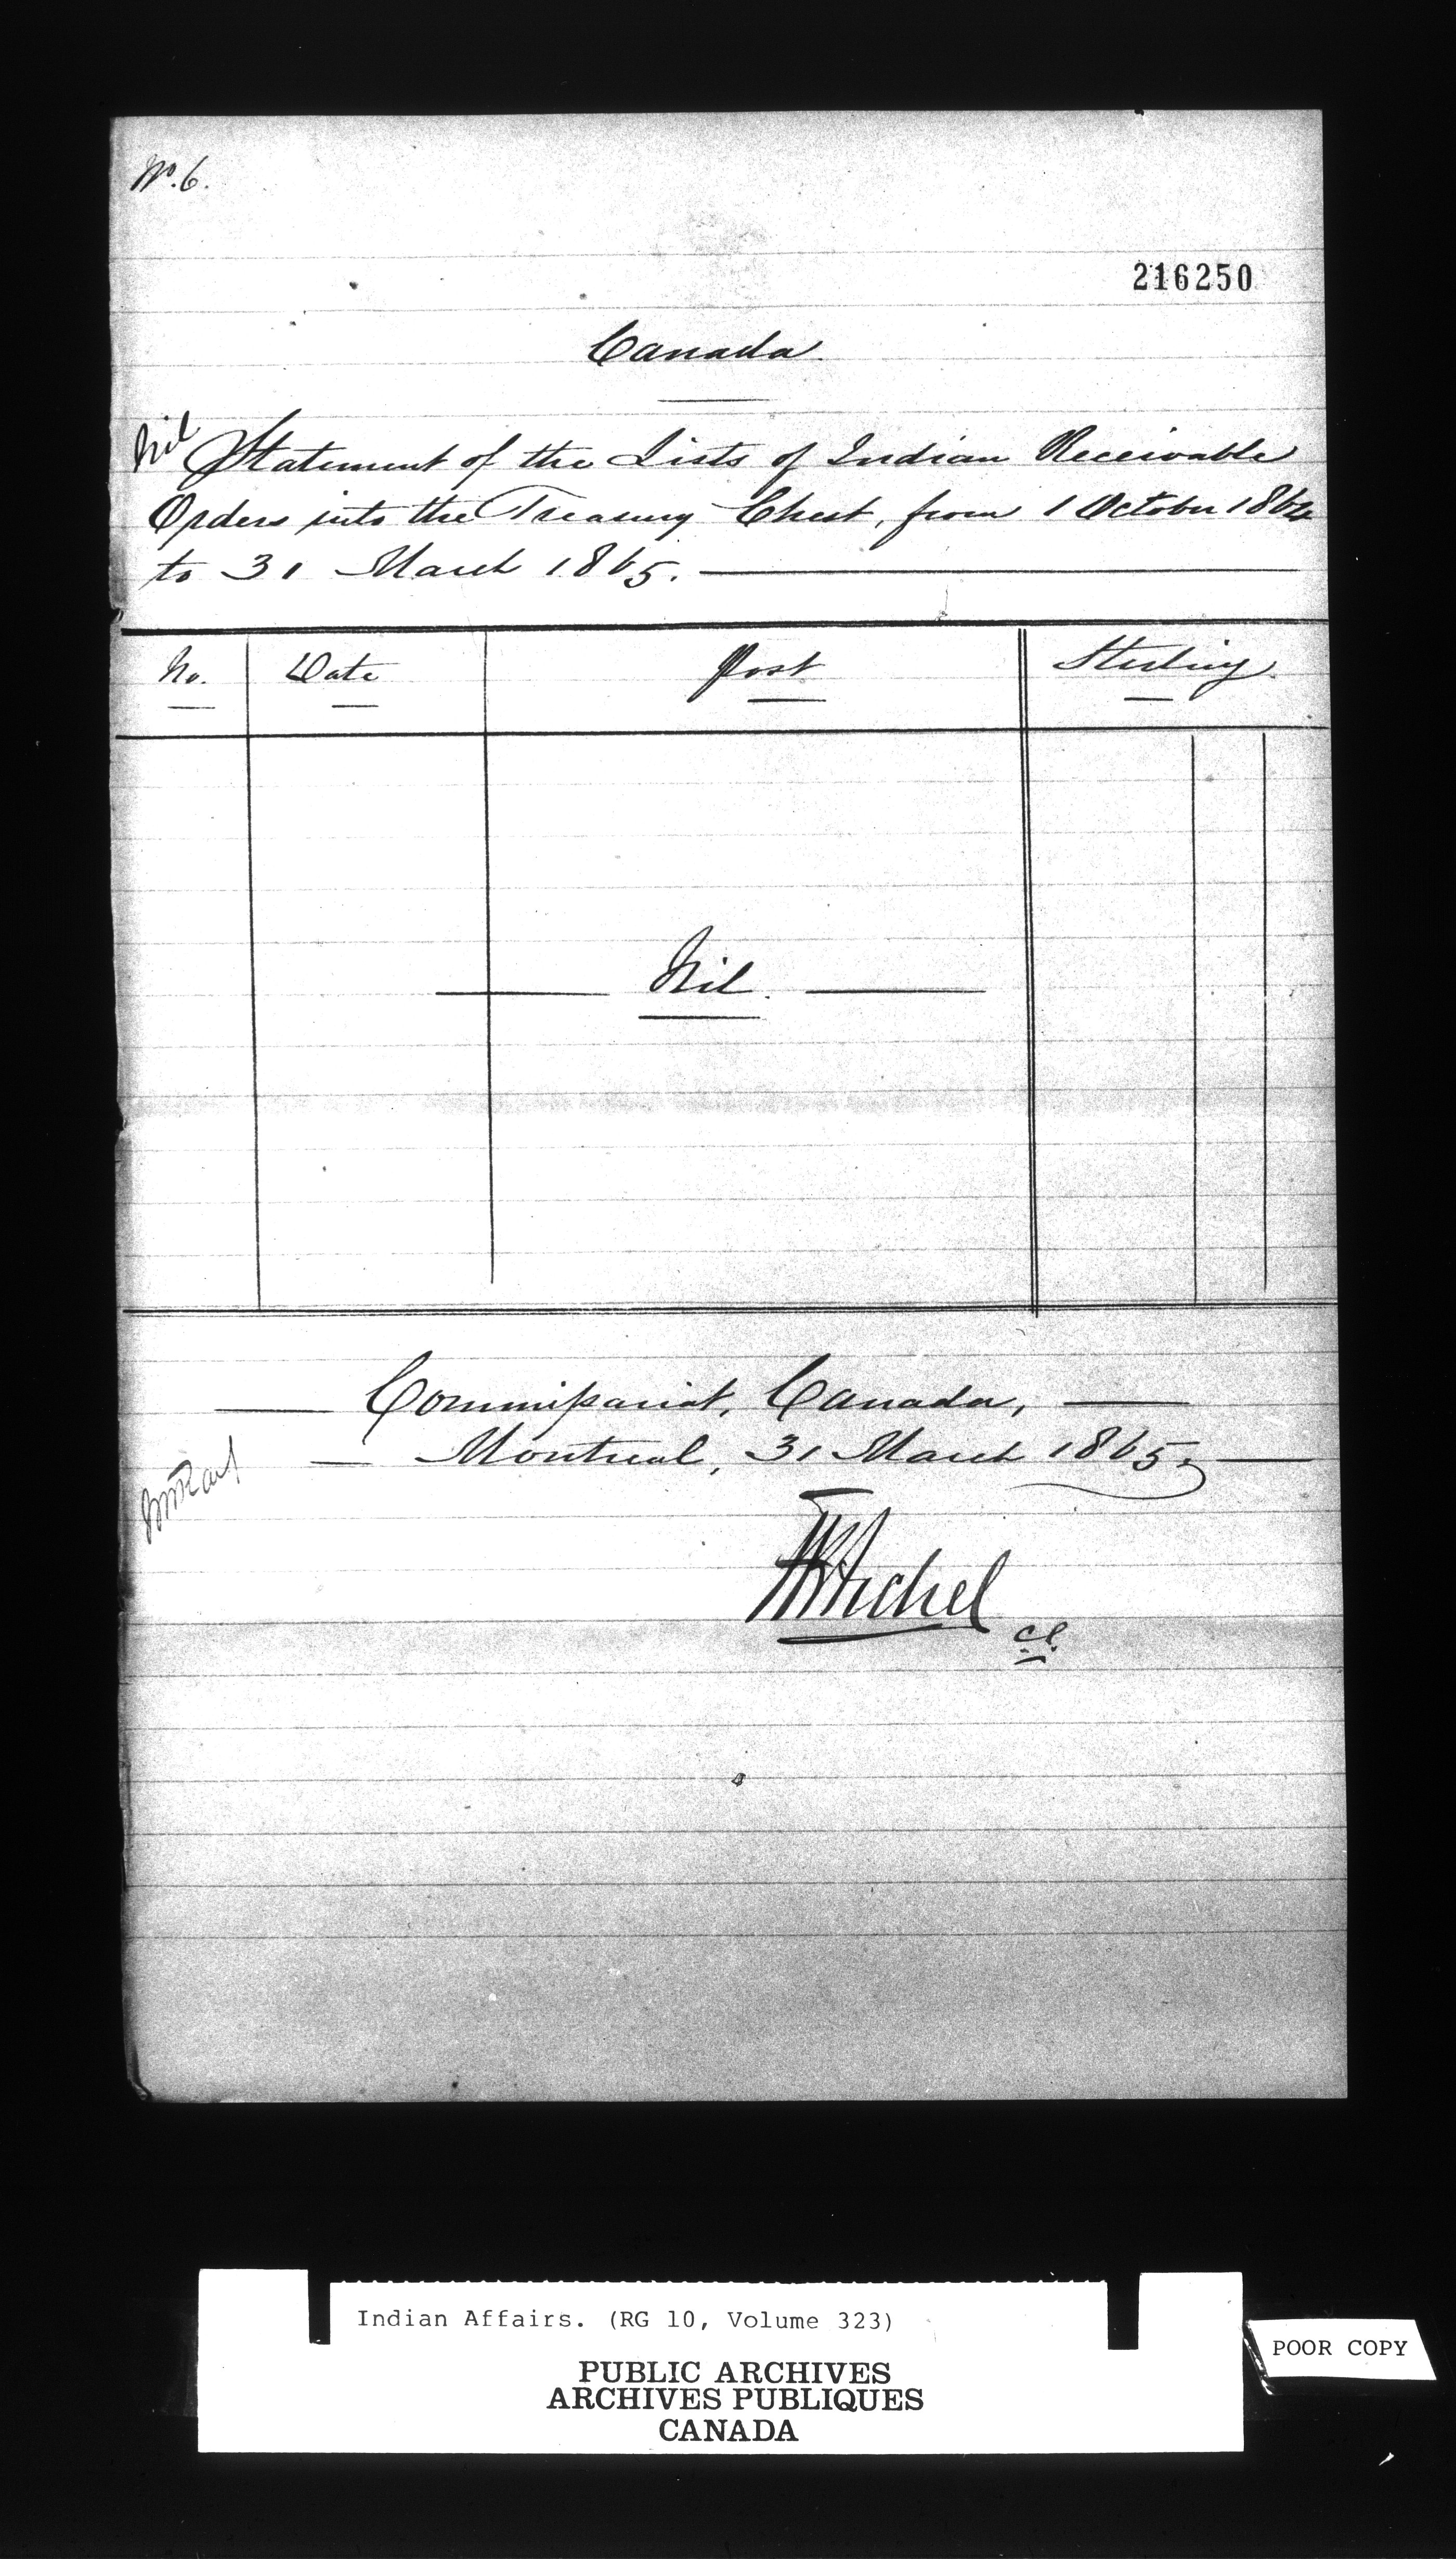 No. 6.
216250
Canada.
Nil
Statement of the Lists of Indian Receivable
Orders into the Treasury Chest, from 1 October 1864
to 31 March 1865.
No. Date Post Sterling.
Nil.
Commissariat, Canada,
Montreal, 31 March 1865.
Indian Affairs. (RG 10, Volume 323)
PUBLIC ARCHIVES
ARCHIVES PUBLIQUES
CANADA
POOR COPY